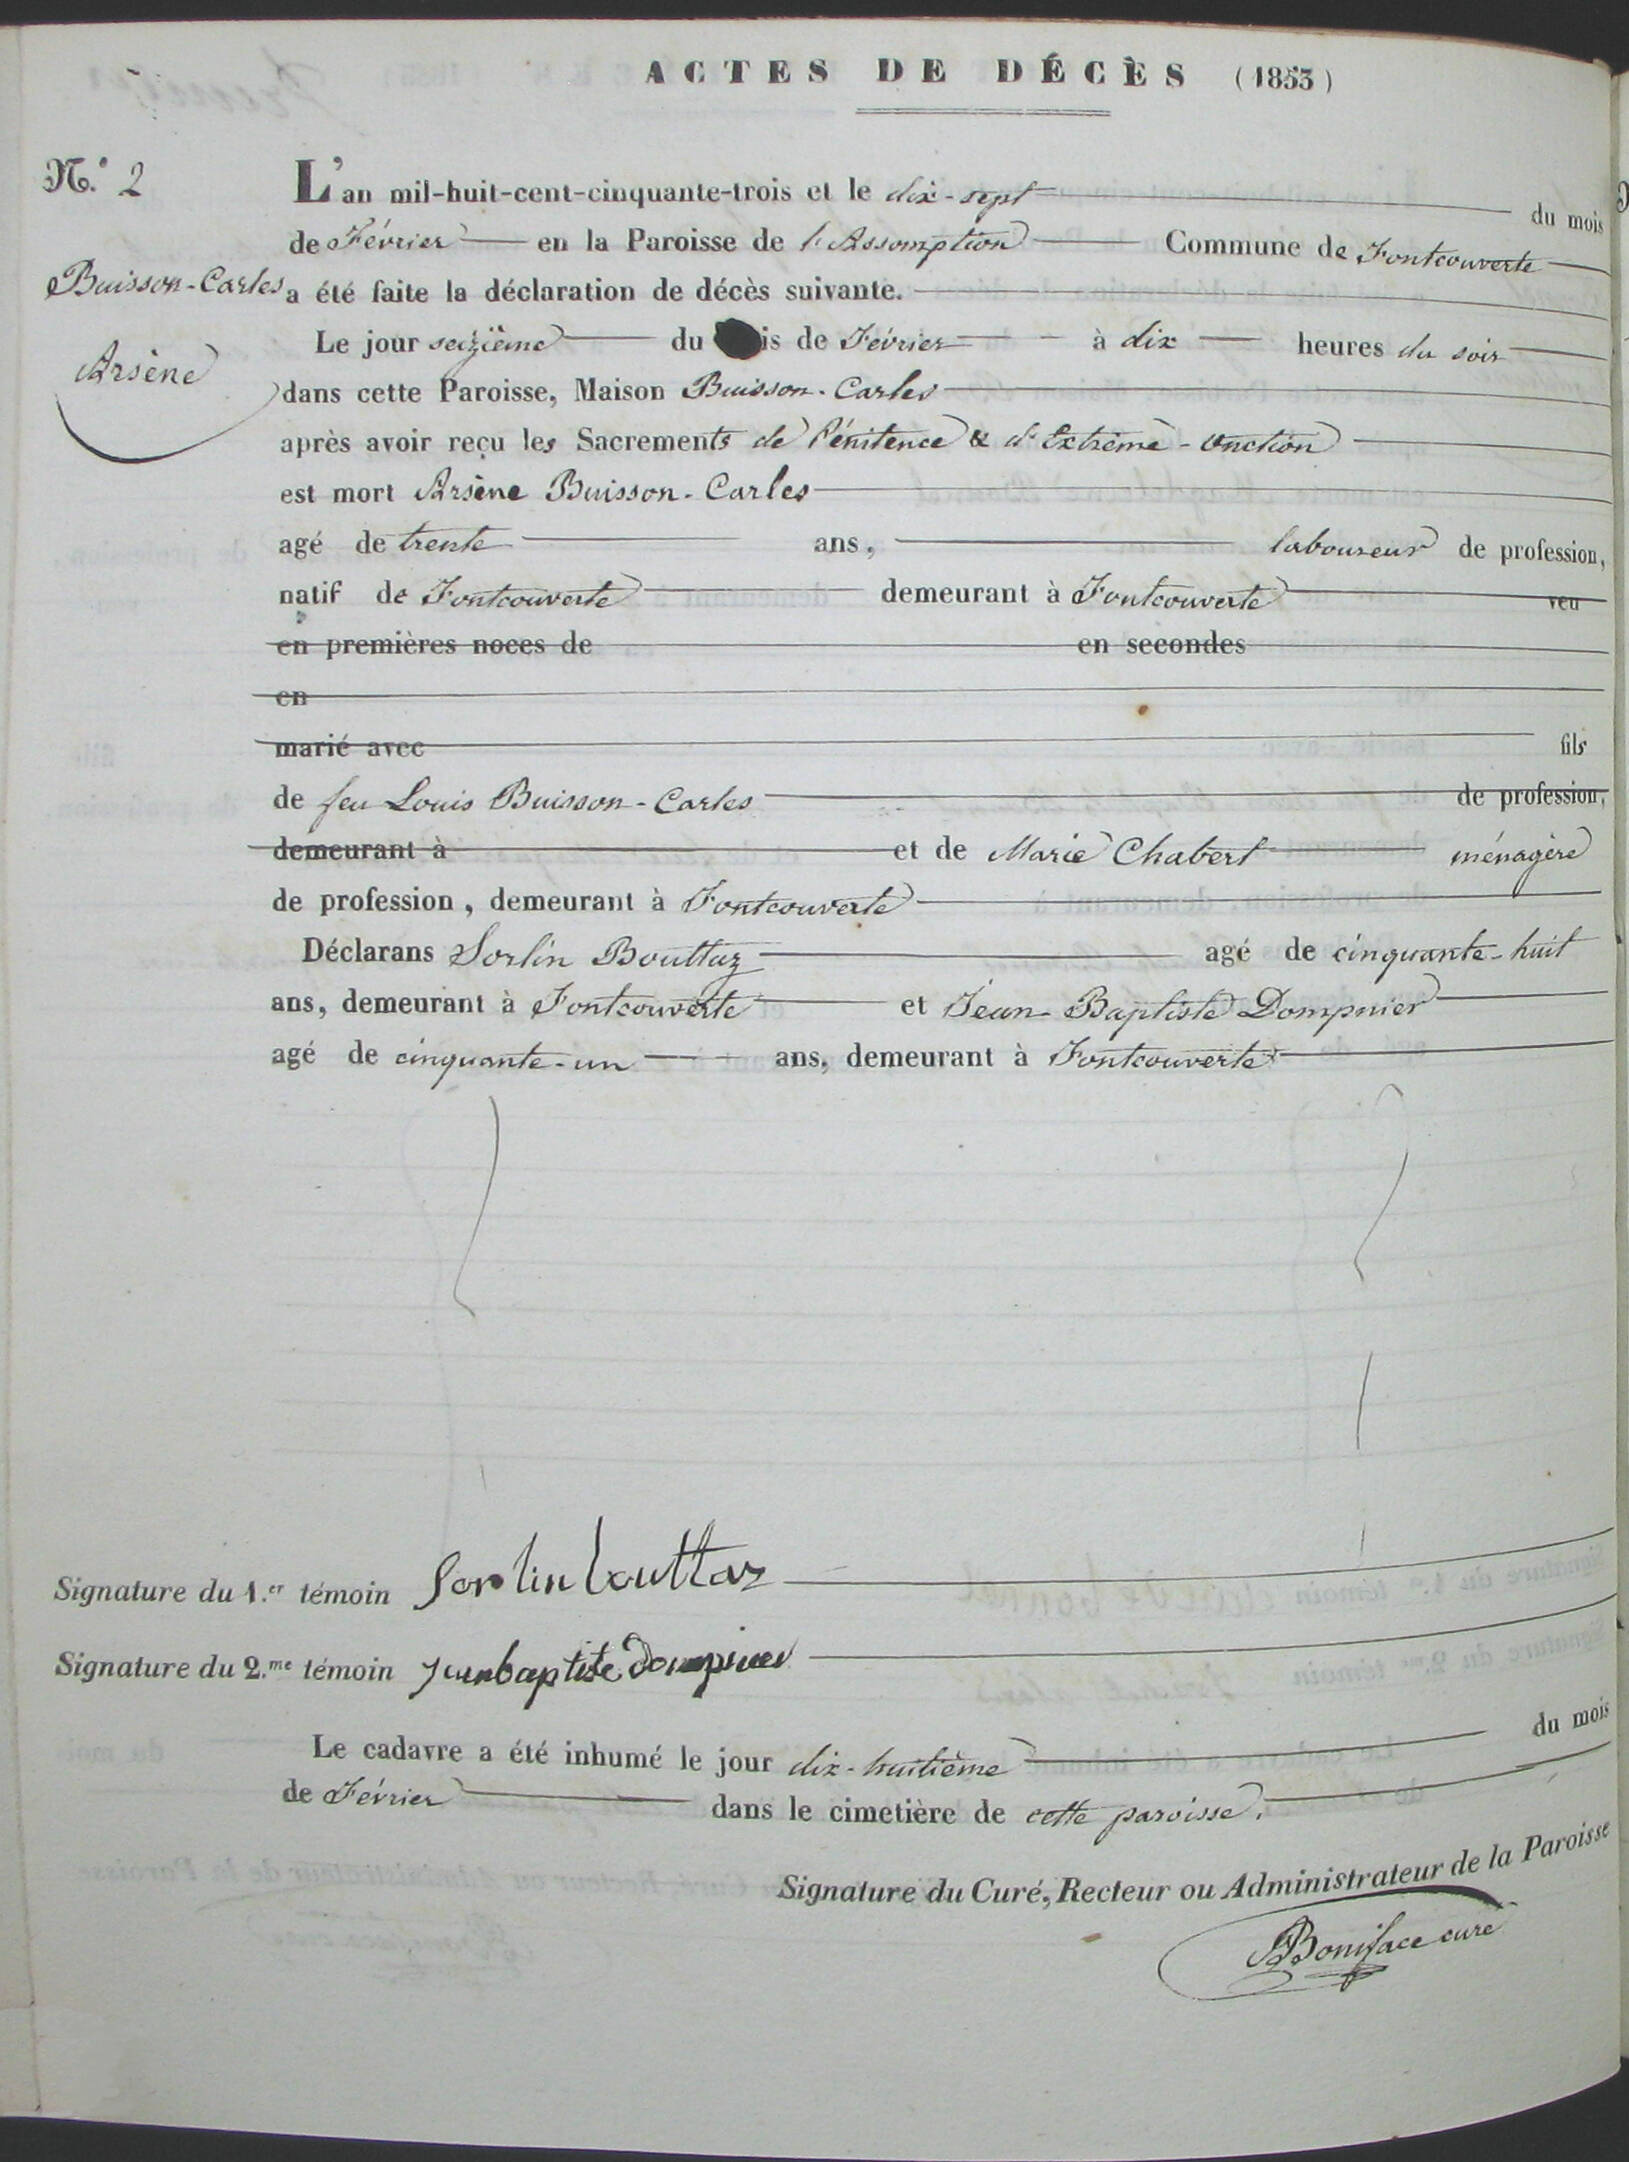 ACTES DE DÉCÈS (1853)
N.° 2
L'an mil-huit-cent-cinquante-trois et le dix-sept du mois
de Février en la Paroisse de l'Assomption Commune de Fontcouverte
Buisson-Carles
a été faite la déclaration de décès suivante.
Arsène
Le jour seizième du is de Février à dix heures du soir
dans cette Paroisse, Maison Buisson-Carles
après avoir reçu les Sacrements de Pénitence & d'Extrême-onction
est mort Arsène Buisson-Carles
agé de trente ans, laboureur de profession,
natif de Fontcouverte demeurant à Fontcouverte veu
en premières noces de en secondes
en
marié avec fils
de feu Louis Buisson-Carles de profession,
demeurant à et de Marie Chabert ménagère
de profession, demeurant à Fontcouverte
Déclarans Sorlin Bouttaz agé de cinquante-huit
ans, demeurant à Fontcouverte et Jean-Baptiste Dompnier
agé de cinquante-un ans, demeurant à Fontcouverte
Signature du 1.er témoin Sorlin bouttaz
Signature du 2.me témoin jeanbaptiste dompnier
Le cadavre a été inhumé le jour dix-huitième du mois
de Février dans le cimetière de cette paroisse.
Signature du Curé, Recteur ou Administrateur de la Paroisse
Boniface curé